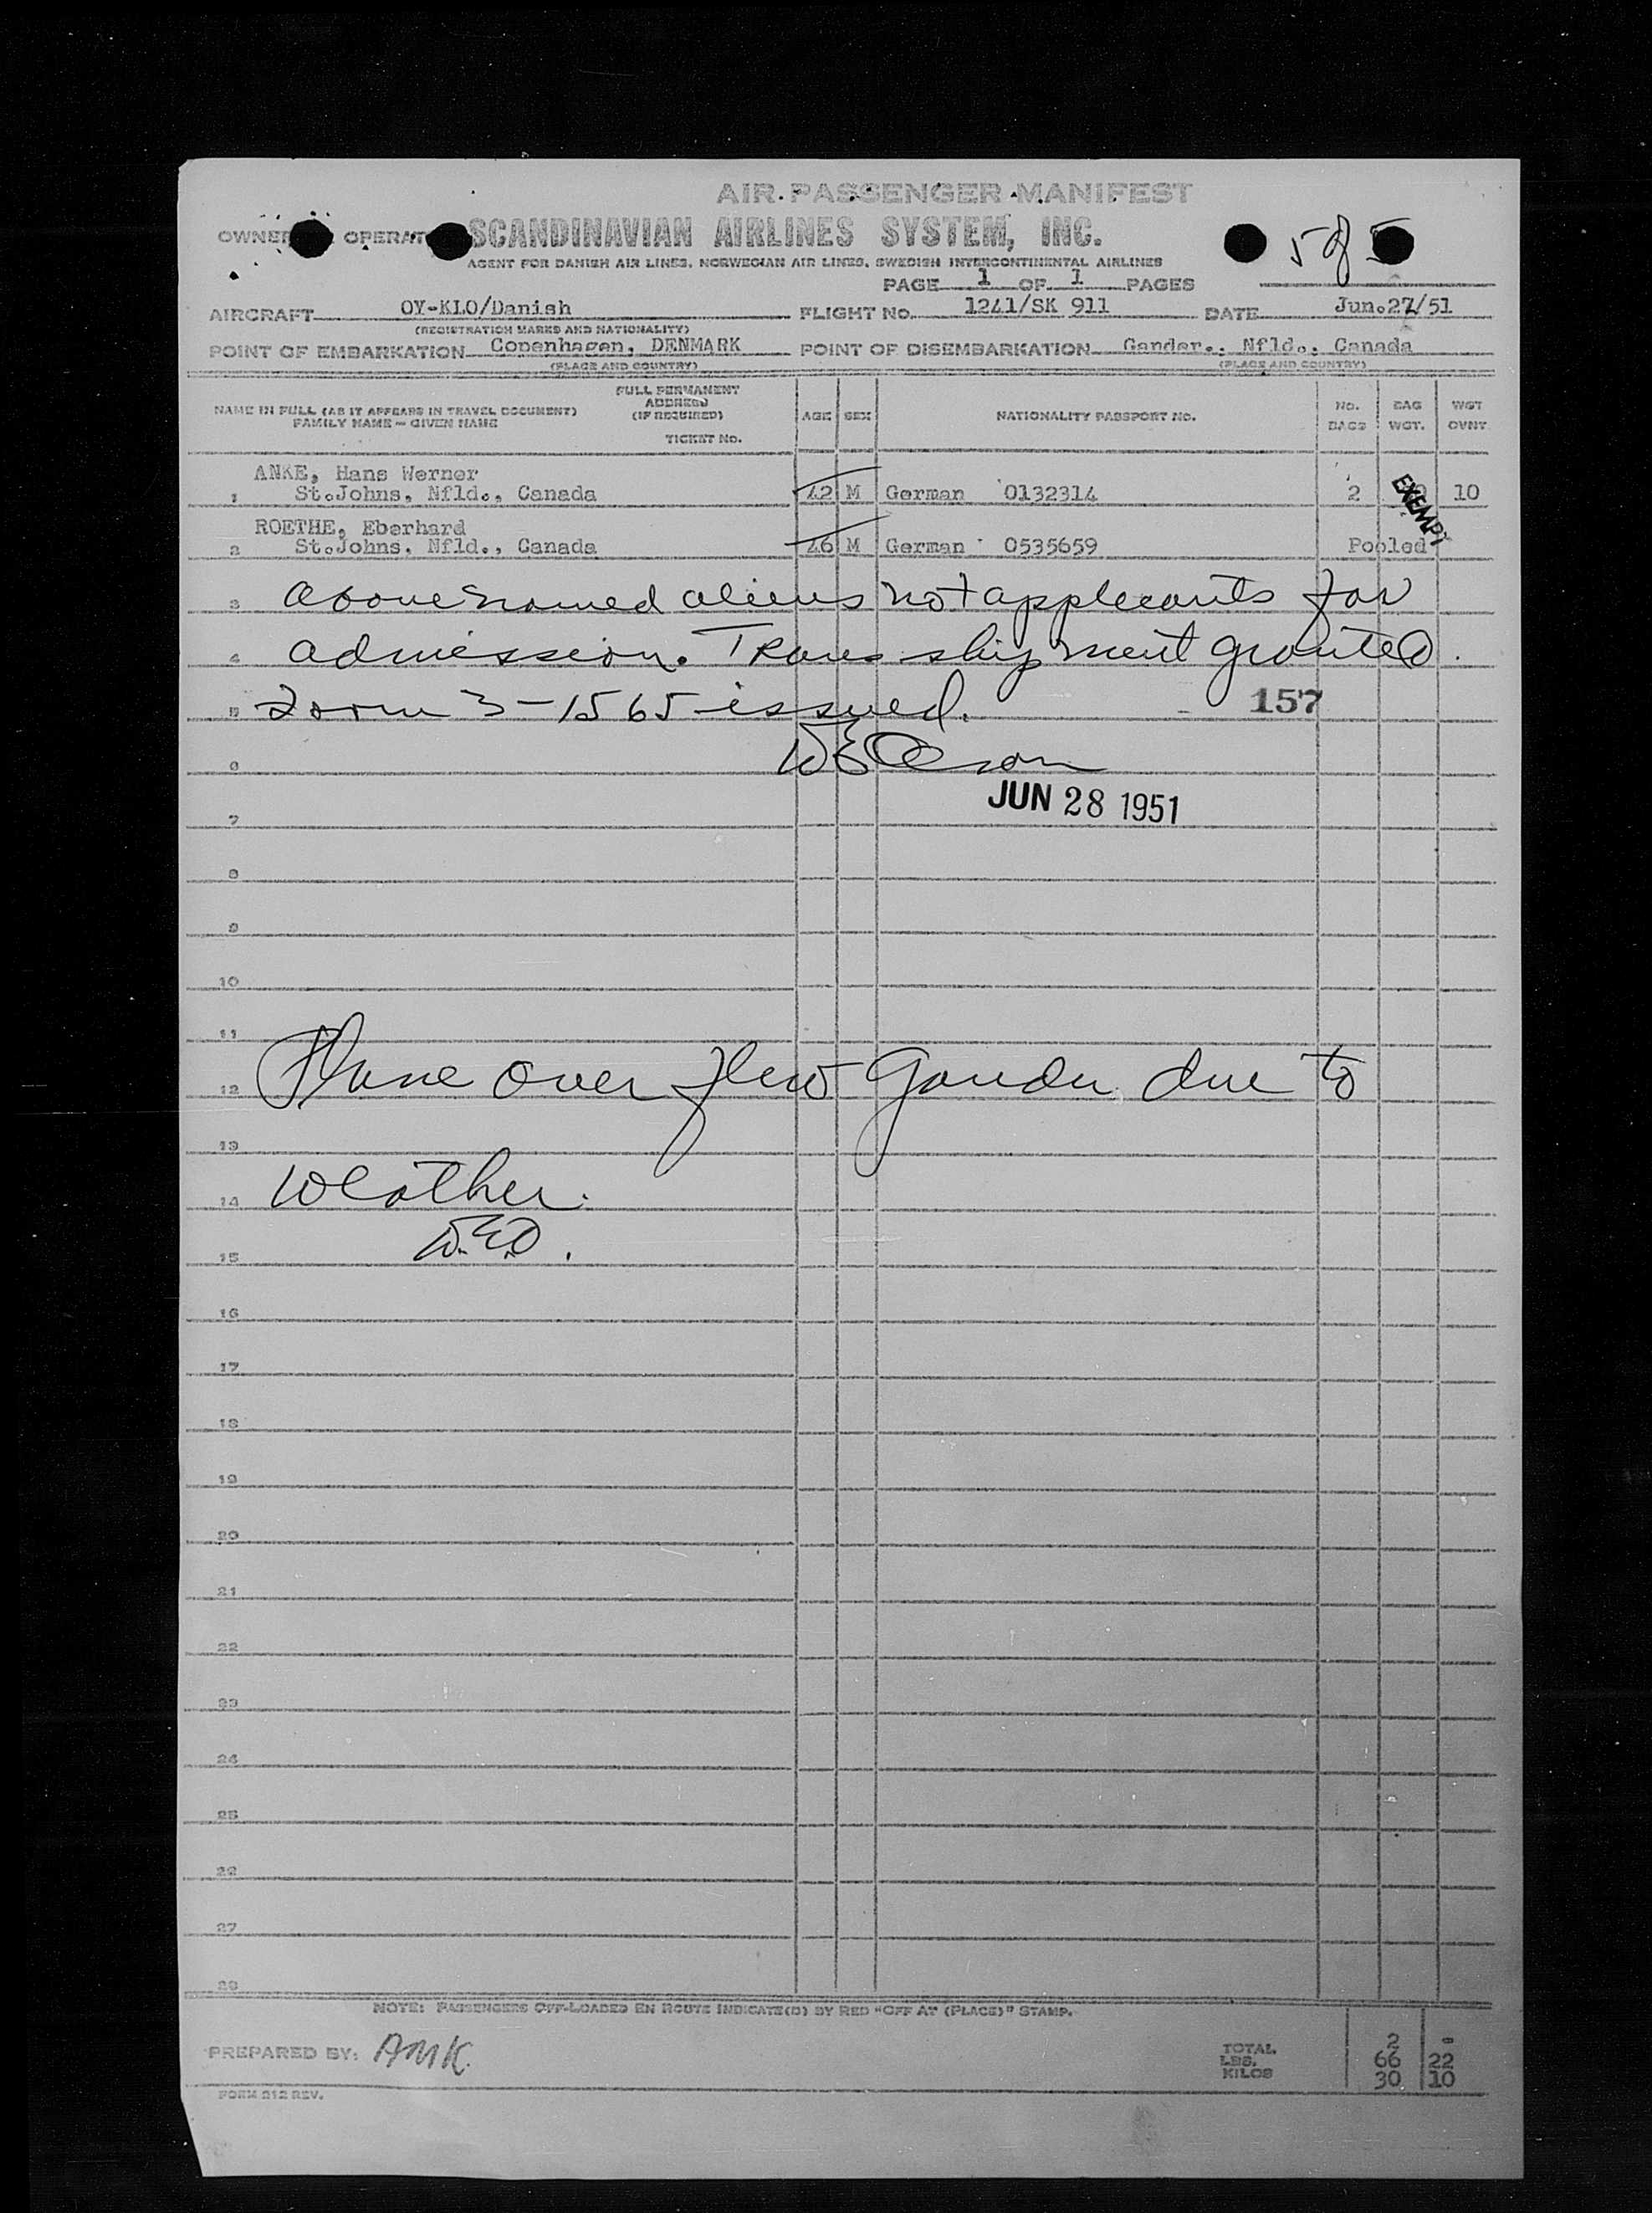 AIR PASSENGER MANIFEST
OWNER OPERAT SCANDINAVIAN AIRLINES SYSTEM, INC.
5 of 5
AGENT FOR DANISH AIR LINES, NORWEGIAN AIR LINES, SWEDISH INTERCONTINENTAL AIRLINES
PAGE 1 OF 1 PAGES
AIRCRAFT OY-KLO/Danish FLIGHT NO. 1241/SK 911 DATE Jun.27/51
(REGISTRATION MARKS AND NATIONALITY)
POINT OF EMBARKATION Copenhagen, DENMARK POINT OF DISEMBARKATION Gander., Nfld., Canada
(PLACE AND COUNTRY) (PLACE AND COUNTRY)
NAME IN FULL (AS IT APPEARS IN TRAVEL DOCUMENT)
FAMILY NAME — GIVEN NAME
FULL PERMANENT
ADDRESS
(IF REQUIRED)
TICKET No.
AGE SEX NATIONALITY PASSPORT No.
No. BAGS
BAG WGT.
WGT OVNT
ANKE, Hans Werner
1 St.Johns, Nfld., Canada 42 M German 0132314 2 10
EXEMPT
ROETHE, Eberhard
2 St.Johns, Nfld., Canada 46 M German 0535659 Pooled
3 above named aliens not applicants for
4 admission. Trans shipment granted.
5 Form 3-1565 issued. 157
6 W E Olson
JUN 28 1951
7
8
9
10
11
12 Plane over flew Gander due to
13
14 weather.
15 W.E.O.
16
17
18
19
20
21
22
23
24
25
26
27
28
NOTE: PASSENGERS OFF-LOADED EN ROUTE INDICATE(D) BY RED "OFF AT (PLACE)" STAMP.
PREPARED BY: AMK.
TOTAL 2 -
LBS. 66 22
KILOS 30 10
FORM 212 REV.